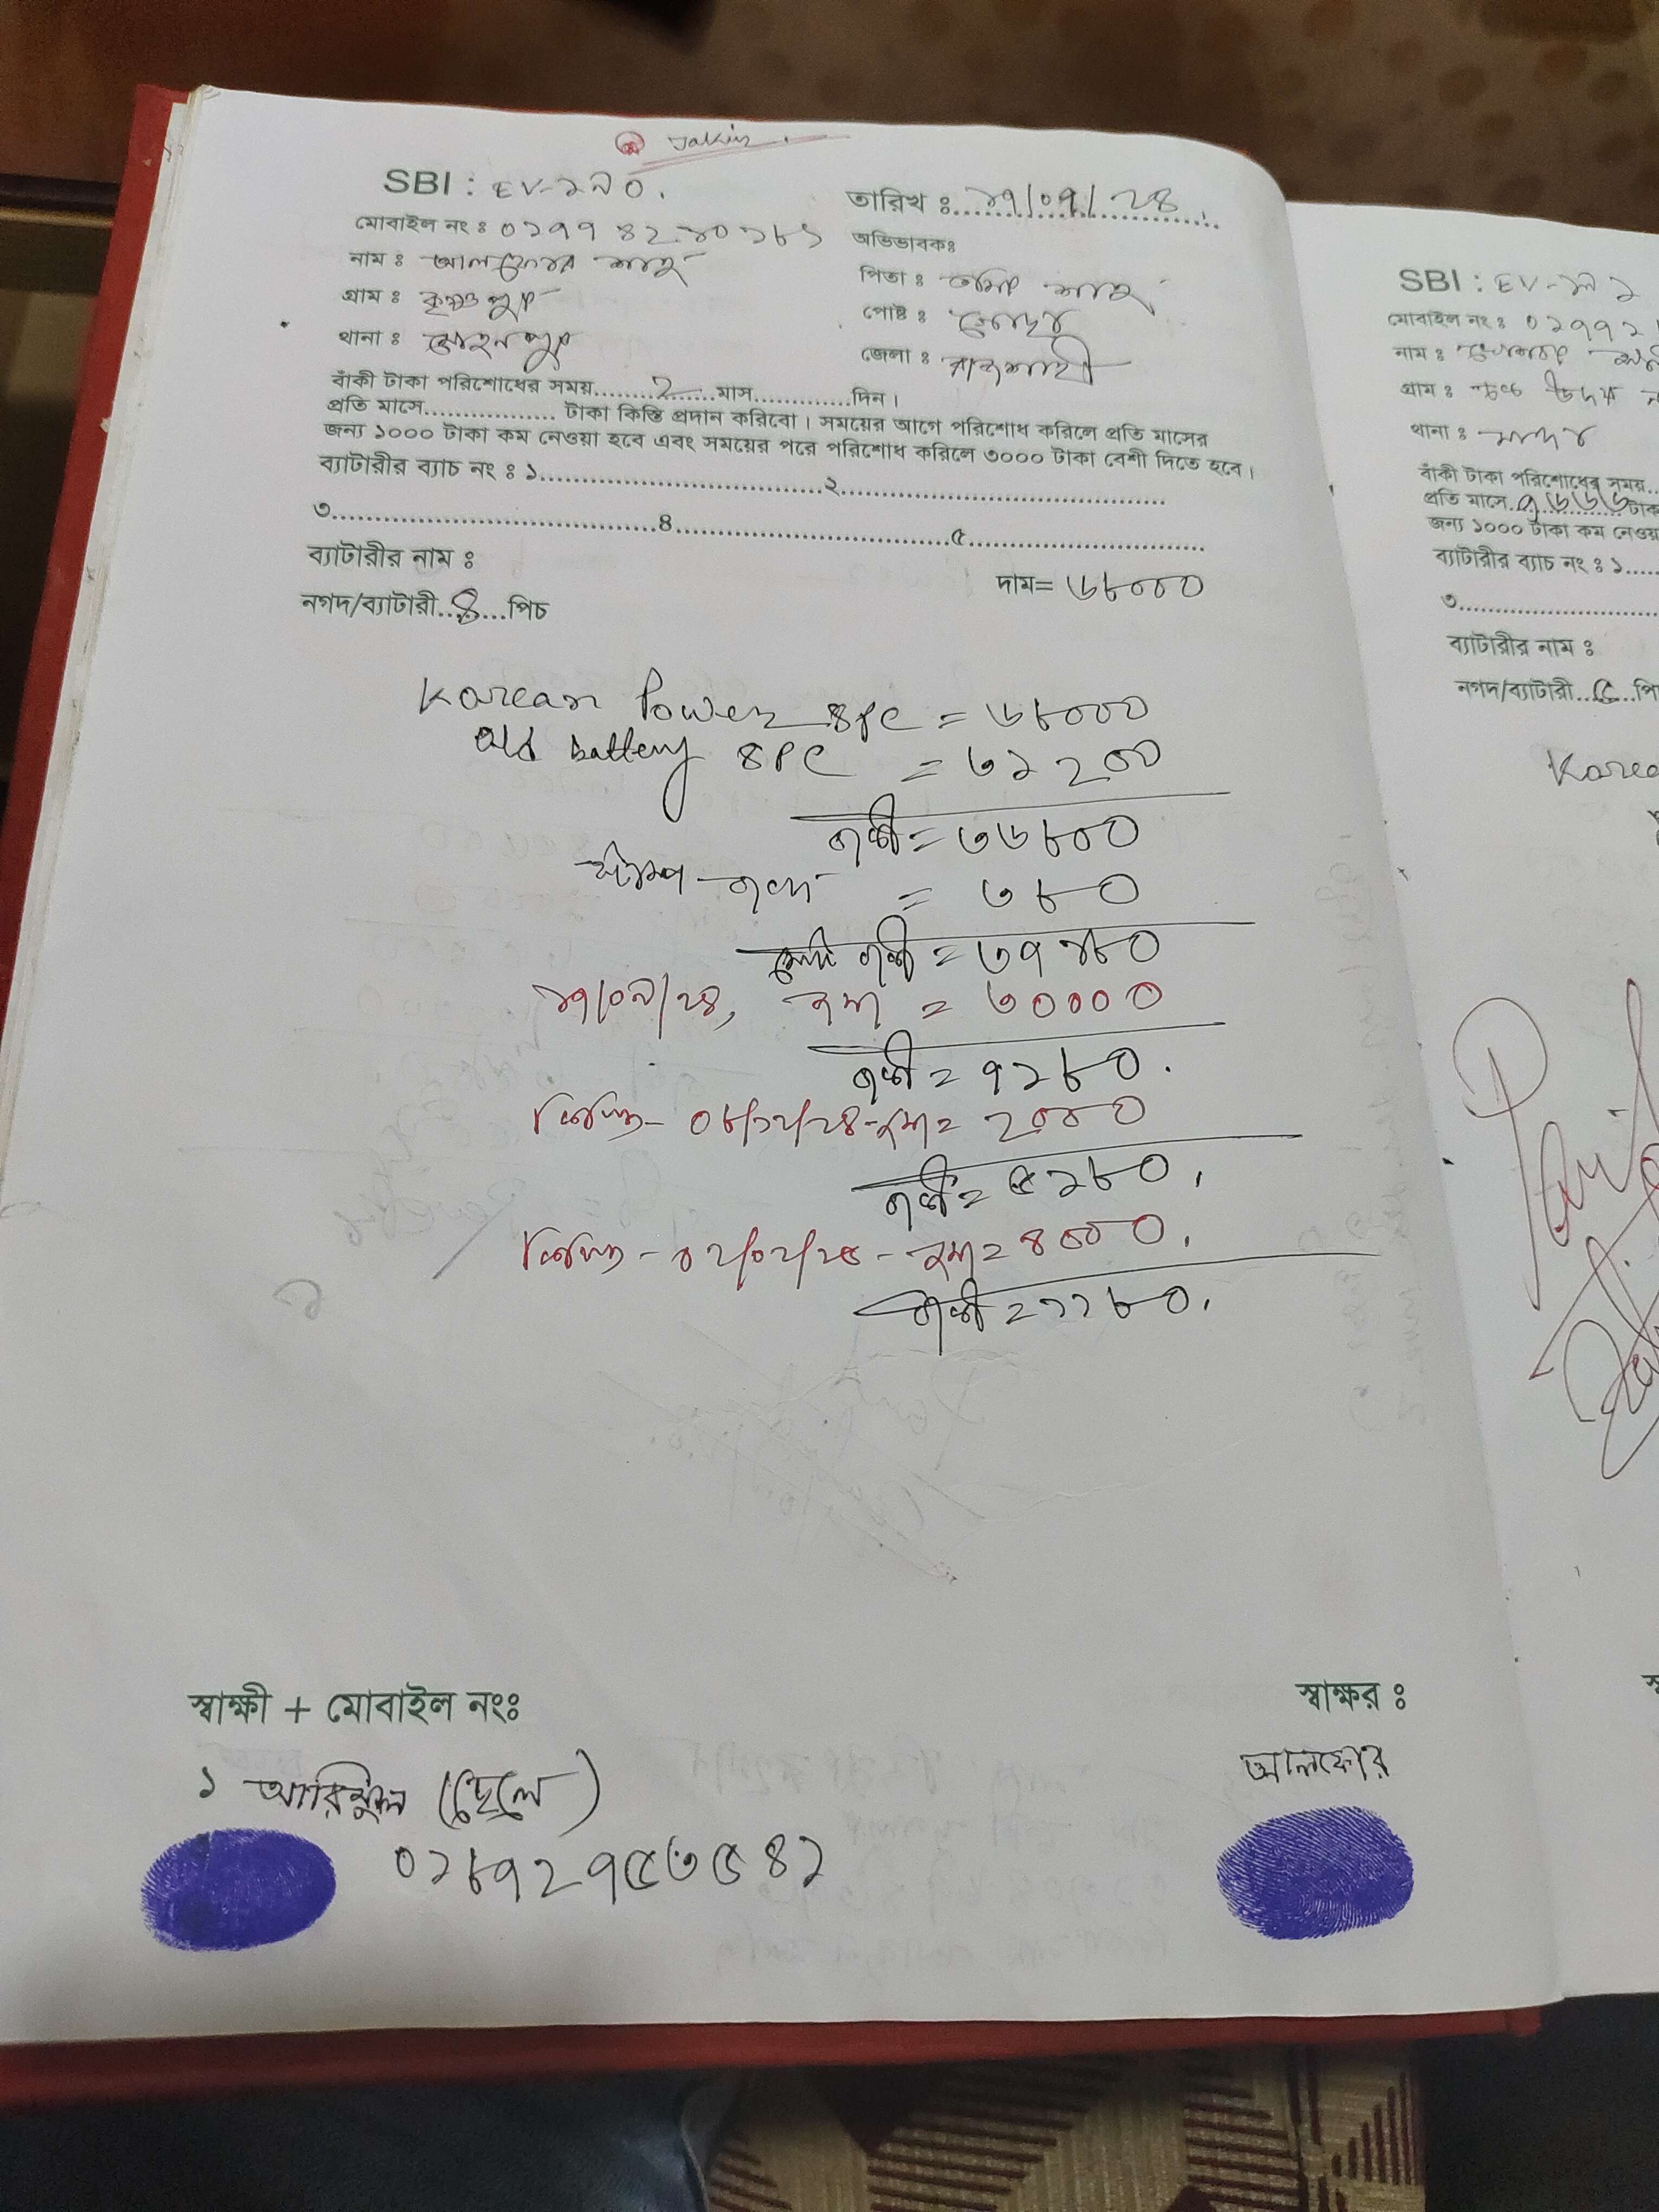 Jakir
SBI : EV-১৯০.
তারিখ ঃ ১৭/০৭/২৪
মোবাইল নং ঃ
অভিভাবকঃ
নাম ঃ আলফোর শাহ্
পিতা ঃ শাহ্
গ্রাম ঃ কৃষ্ণপুর
পোষ্ট ঃ
থানা ঃ মোহনপুর
জেলা ঃ রাজশাহী
বাঁকী টাকা পরিশোধের সময়........২......মাস..............দিন।
প্রতি মাসে.................. টাকা কিস্তি প্রদান করিবো। সময়ের আগে পরিশোধ করিলে প্রতি মাসের
জন্য ১০০০ টাকা কম নেওয়া হবে এবং সময়ের পরে পরিশোধ করিলে ৩০০০ টাকা বেশী দিতে হবে।
ব্যাটারীর ব্যাচ নং ঃ ১........................................২..............................................
৩..............................................৪.......................................৫..................................
ব্যাটারীর নাম ঃ
দাম= ৬৮০০০
নগদ/ব্যাটারী..৪...পিচ
Korean Power ৪PC = ৬৮০০০
old battery ৪PC = ৩১২০০
বাকী = ৩৬৮০০
= ৩৮০
মোট বাকী = ৩৭১৮০
১৭/০৯/২৪, জমা = ৩০০০০
বাকী = ৭১৮০.
কিস্তি- ০৮/১২/২৪-জমা= ২০০০
বাকী = ৫১৮০.
কিস্তি - ০২/০২/২৫ - জমা= ৪০০০.
বাকী = ১১৮০.
স্বাক্ষী + মোবাইল নংঃ
স্বাক্ষর ঃ
১ আরিফুল (ছেলে)
আলফোর
০১৮৭২৭৫৩৫৪১
SBI : EV-১৯১
মোবাইল নং ঃ ০১৭৭২
নাম ঃ
গ্রাম ঃ
থানা ঃ
বাঁকী টাকা পরিশোধের সময়..
প্রতি মাসে..৭৬৬৬..টাক
জন্য ১০০০ টাকা কম নেওয়
ব্যাটারীর ব্যাচ নং ঃ ১.....
৩..................
ব্যাটারীর নাম ঃ
নগদ/ব্যাটারী..৫..পি
Korea